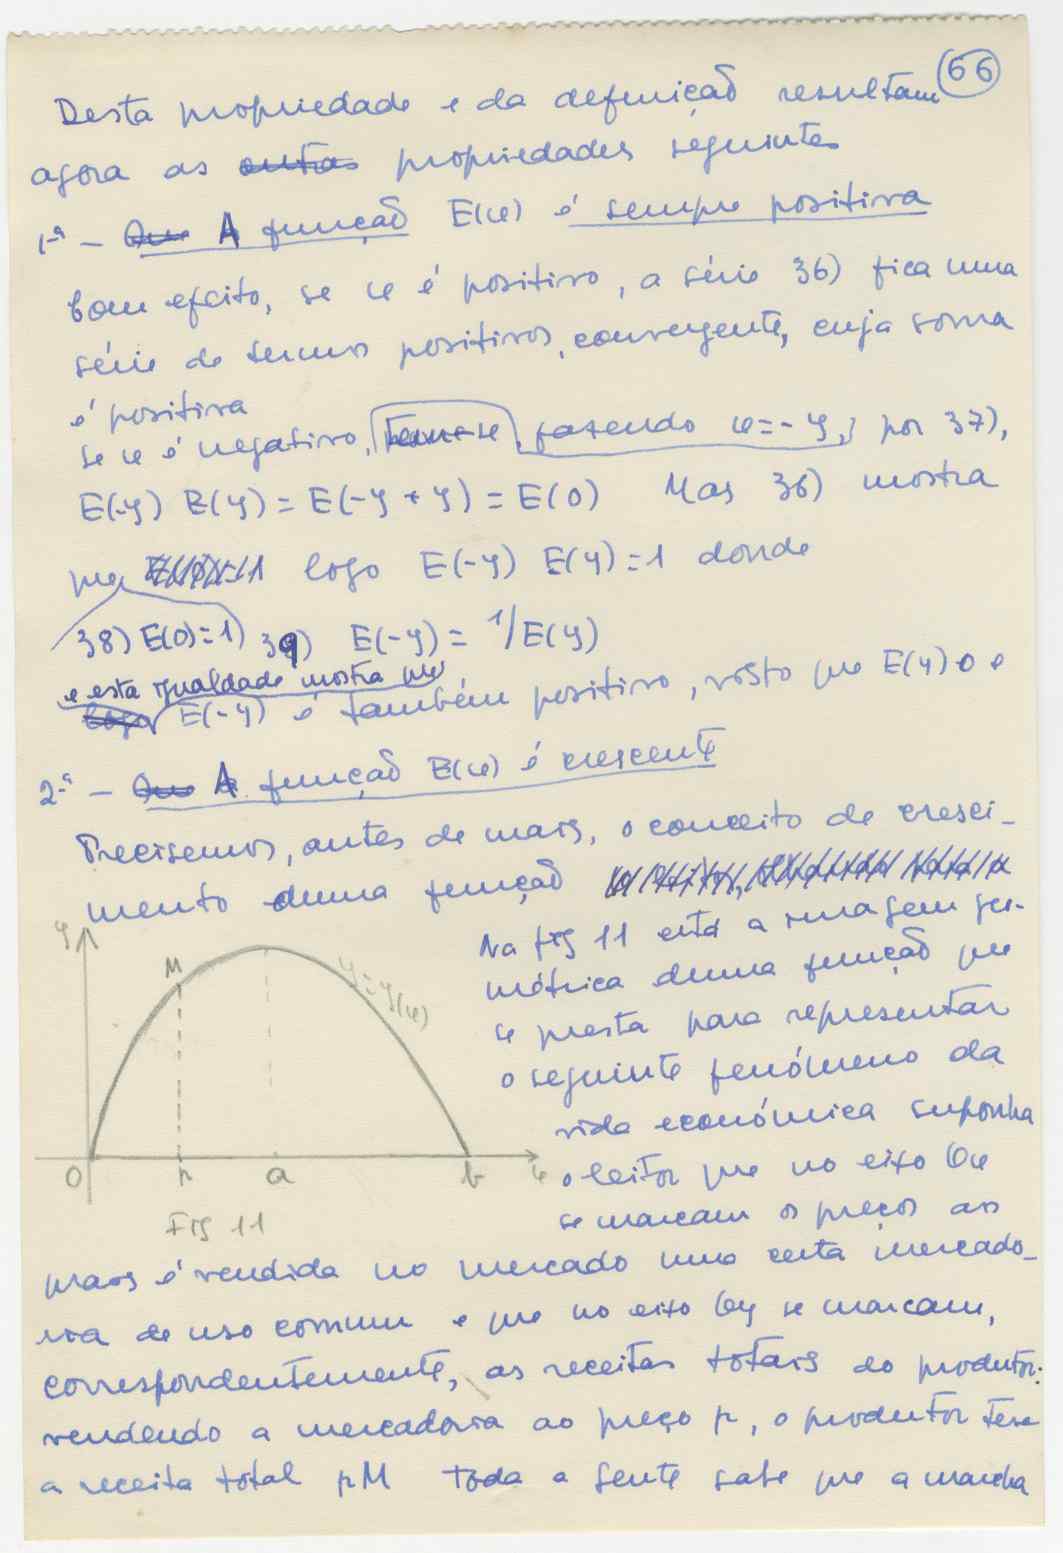 66
Desta propriedade e da definição resultam
agora as outras propriedades seguintes
1ª - Que A função E(x) é sempre positiva
Com efeito, se x é positivo, a série 36) fica uma
série de termos positivos, convergente, cuja soma
é positiva
se x é negativo, tem-se, fazendo x=-y, por 37),
E(-y) E(y) = E(-y + y) = E(0) Mas 36) mostra
que logo E(-y) E(y)=1 donde
38) E(0)=1) 39) E(-y) = 1/E(y)
e esta igualdade mostra que
logo E(-y) é também positivo, visto que E(y) o é
2ª - Que A função E(x) é crescente
Precisemos, antes de mais, o conceito de cresci-
mento duma função
Na fig 11 está a imagem geo-
métrica duma função que
se presta para representar
o seguinte fenómeno da
vida económica suponha
o leitor que no eixo Ox
se marcam os preços aos
y
M
y=y(x)
O p a b x
Fig 11
quais é vendida no mercado uma certa mercado-
ria de uso comum e que no eixo Oy se marcam,
correspondentemente, as receitas totais do produtor:
vendendo a mercadoria ao preço p, o produtor terá
a receita total pM Toda a gente sabe que a marcha